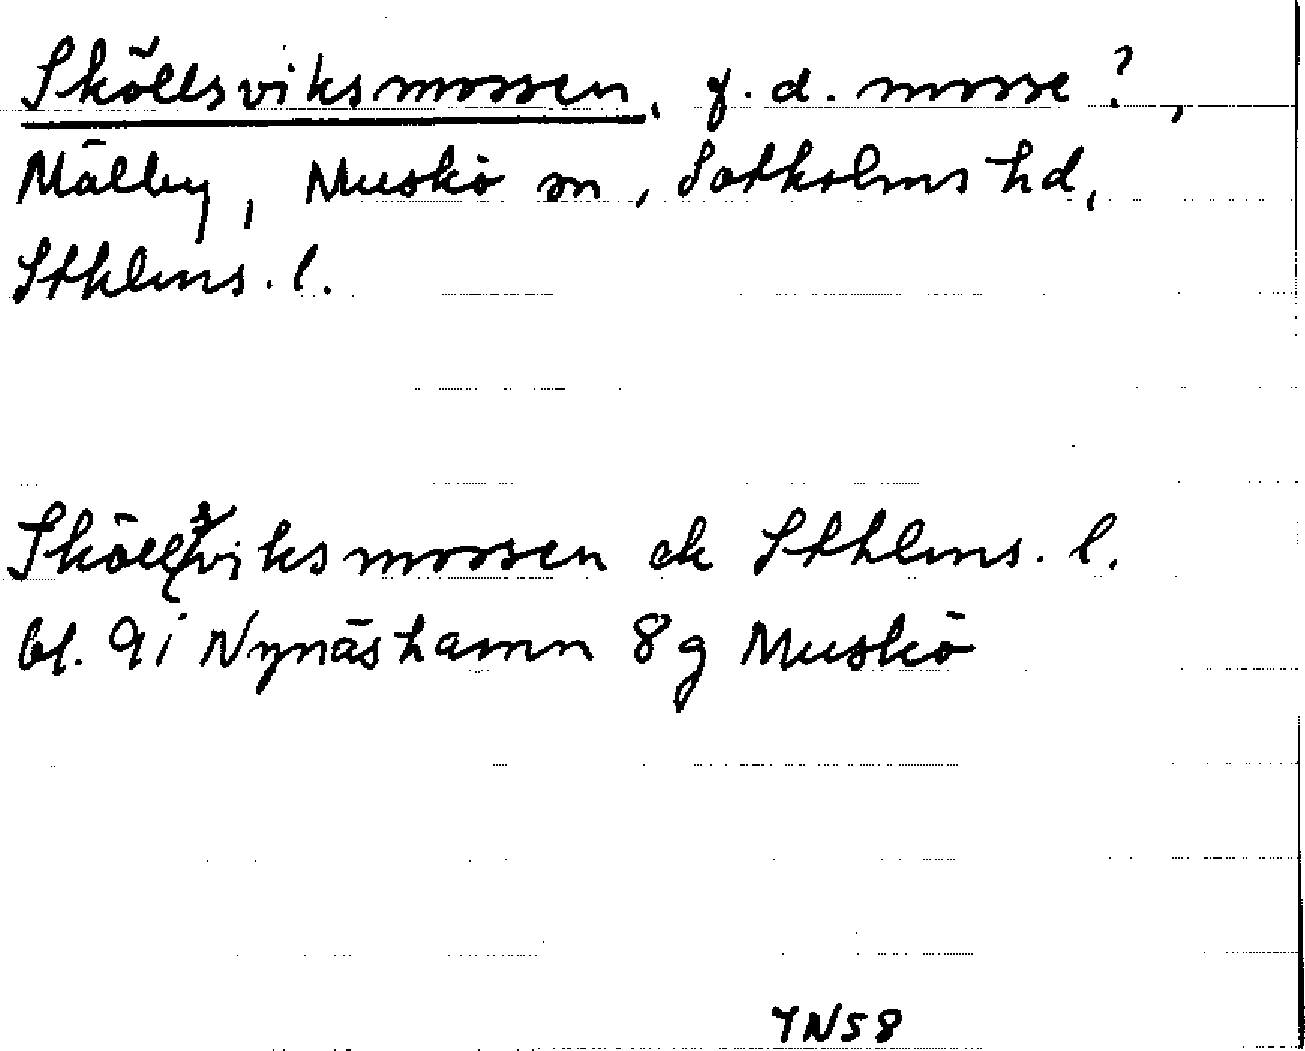 Sköllsviksmossen, f.d. mosse?,
Mälby, Muskö sn, Sotholms hd,
Sthlms. l.
Sköllsviksmossen ek Sthlms. l.
bl. 9i Nynäshamn 8g Muskö
YN58